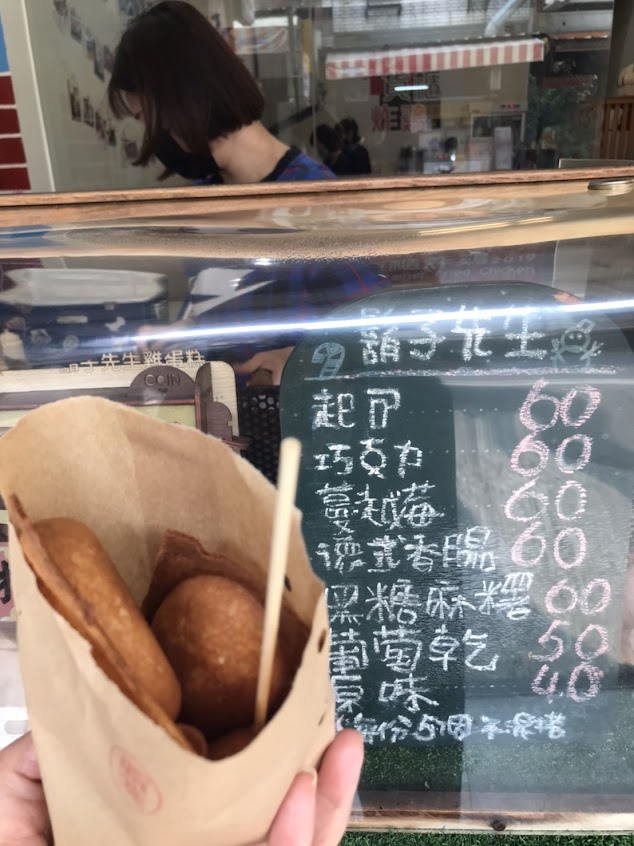 子先生雞蛋糕
COIN
鬍子先生
起司 60
巧克力 60
蔓越莓 60
德式香腸 60
黑糖麻糬 60
葡萄乾 50
原味 40
每份5個 不混搭